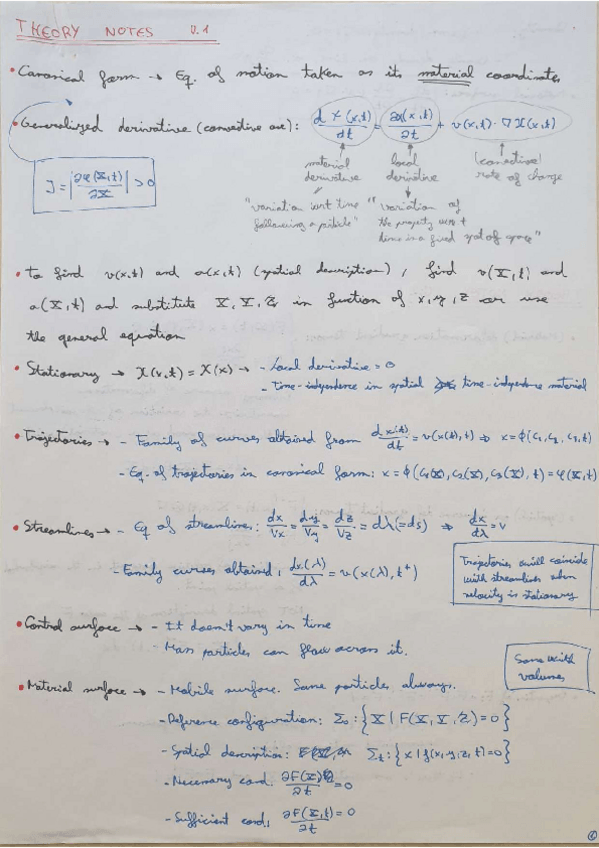 THEORY NOTES U.1
• Canonical form → Eq. of motion taken as its material coordinates
• Generalized derivative (convective one): dχ(x,t)/dt = ∂χ(x,t)/∂t + v(x,t)·∇χ(x,t)
J = |∂φ(X,t)/∂X| > 0
material derivative
local derivative
(convective) rate of change
"variation wrt time following a particle"
"variation of the property wrt time in a fixed spot of space"
• To find v(x,t) and a(x,t) (spatial description), find v(X,t) and
a(X,t) and substitute X, Y, Z in function of x,y,z or use
the general equation
• Stationary → χ(x,t) = χ(x) → - Local derivative = 0
- Time-independence in spatial time-independence material
• Trajectories → - Family of curves obtained from dx(t)/dt = v(x(t),t) ⇒ x = ϕ(C1, C2, C3, t)
- Eq. of trajectories in canonical form: x = ϕ(C1(X), C2(X), C3(X), t) = φ(X,t)
• Streamlines → - Eq of streamlines: dx/Vx = dy/Vy = dz/Vz = dλ(=ds) ⇒ dx/dλ = v
- Family curves obtained: dx(λ)/dλ = v(x(λ), t*)
Trajectories will coincide
with streamlines when
velocity is stationary
• Control surface → - It doesn't vary in time
- Mass particles can flow across it.
Same with
volumes
• Material surface → - Mobile surface. Same particles always.
- Reference configuration: Σ₀: {X | F(X,Y,Z) = 0}
- Spatial description: Σt: {x | f(x,y,z,t) = 0}
- Necessary cond: ∂F(X)/∂t = 0
- Sufficient cond: ∂F(X,t)/∂t = 0